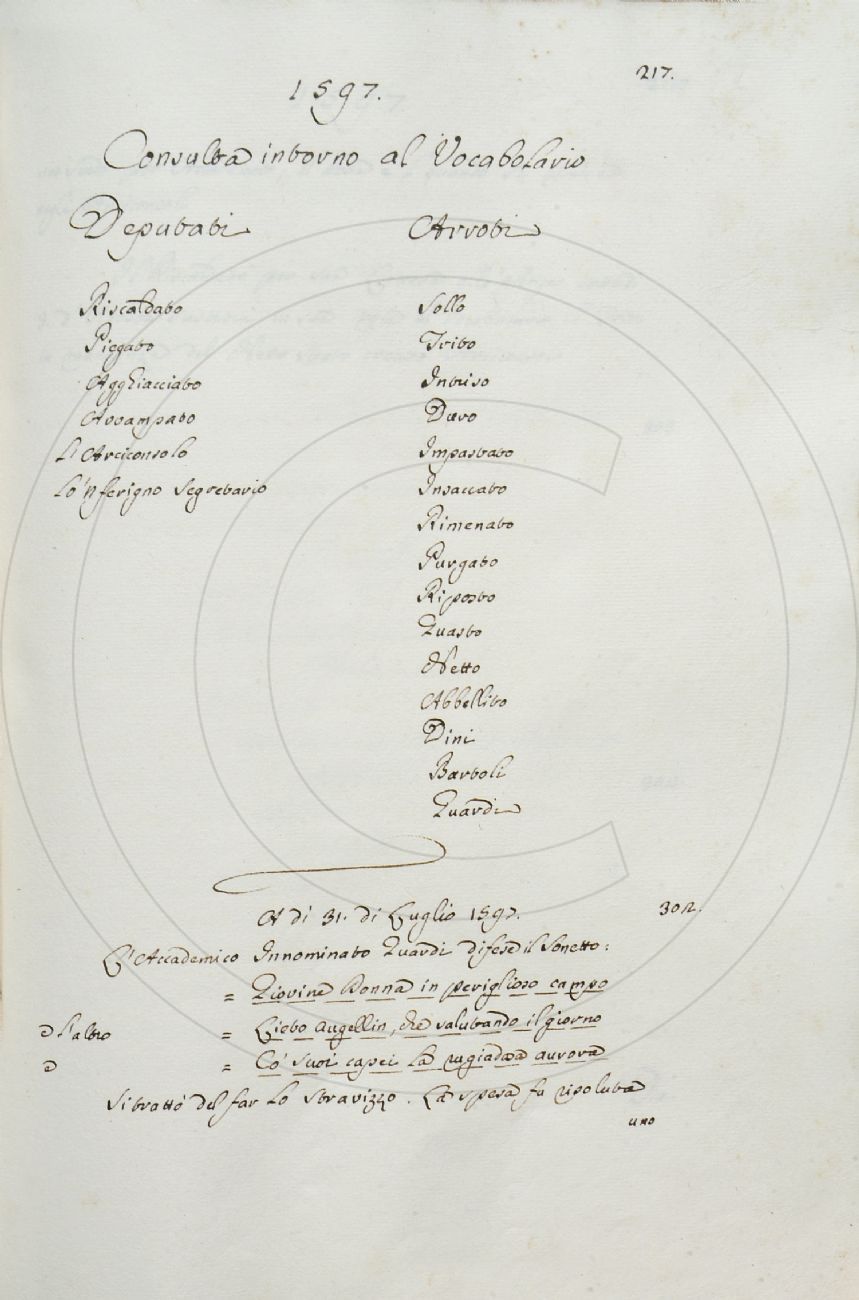 217.
1597.
Consulta intorno al Vocabolario
Deputati
Arroti
Riscaldato
Piegato
Agghiacciato
Avvampato
L'Arciconsolo
Lo 'nferigno Segretario
Sollo
Trito
Intriso
Duro
Impastato
Insaccato
Rimenato
Purgato
Riposto
Guasto
Netto
Abbellito
Dini
Bartoli
Guardi
A di 31. di Luglio 1597. 302.
L'Accademico Innominato Guardi difese il Sonetto:
= Giovine Donna in periglioso campo
e l'altro = Lieto augellin, che salutando il giorno
e = Co' suoi capei la rugiadosa aurora
Si trattò del far lo stravizzo. La spesa fu risoluta
uno